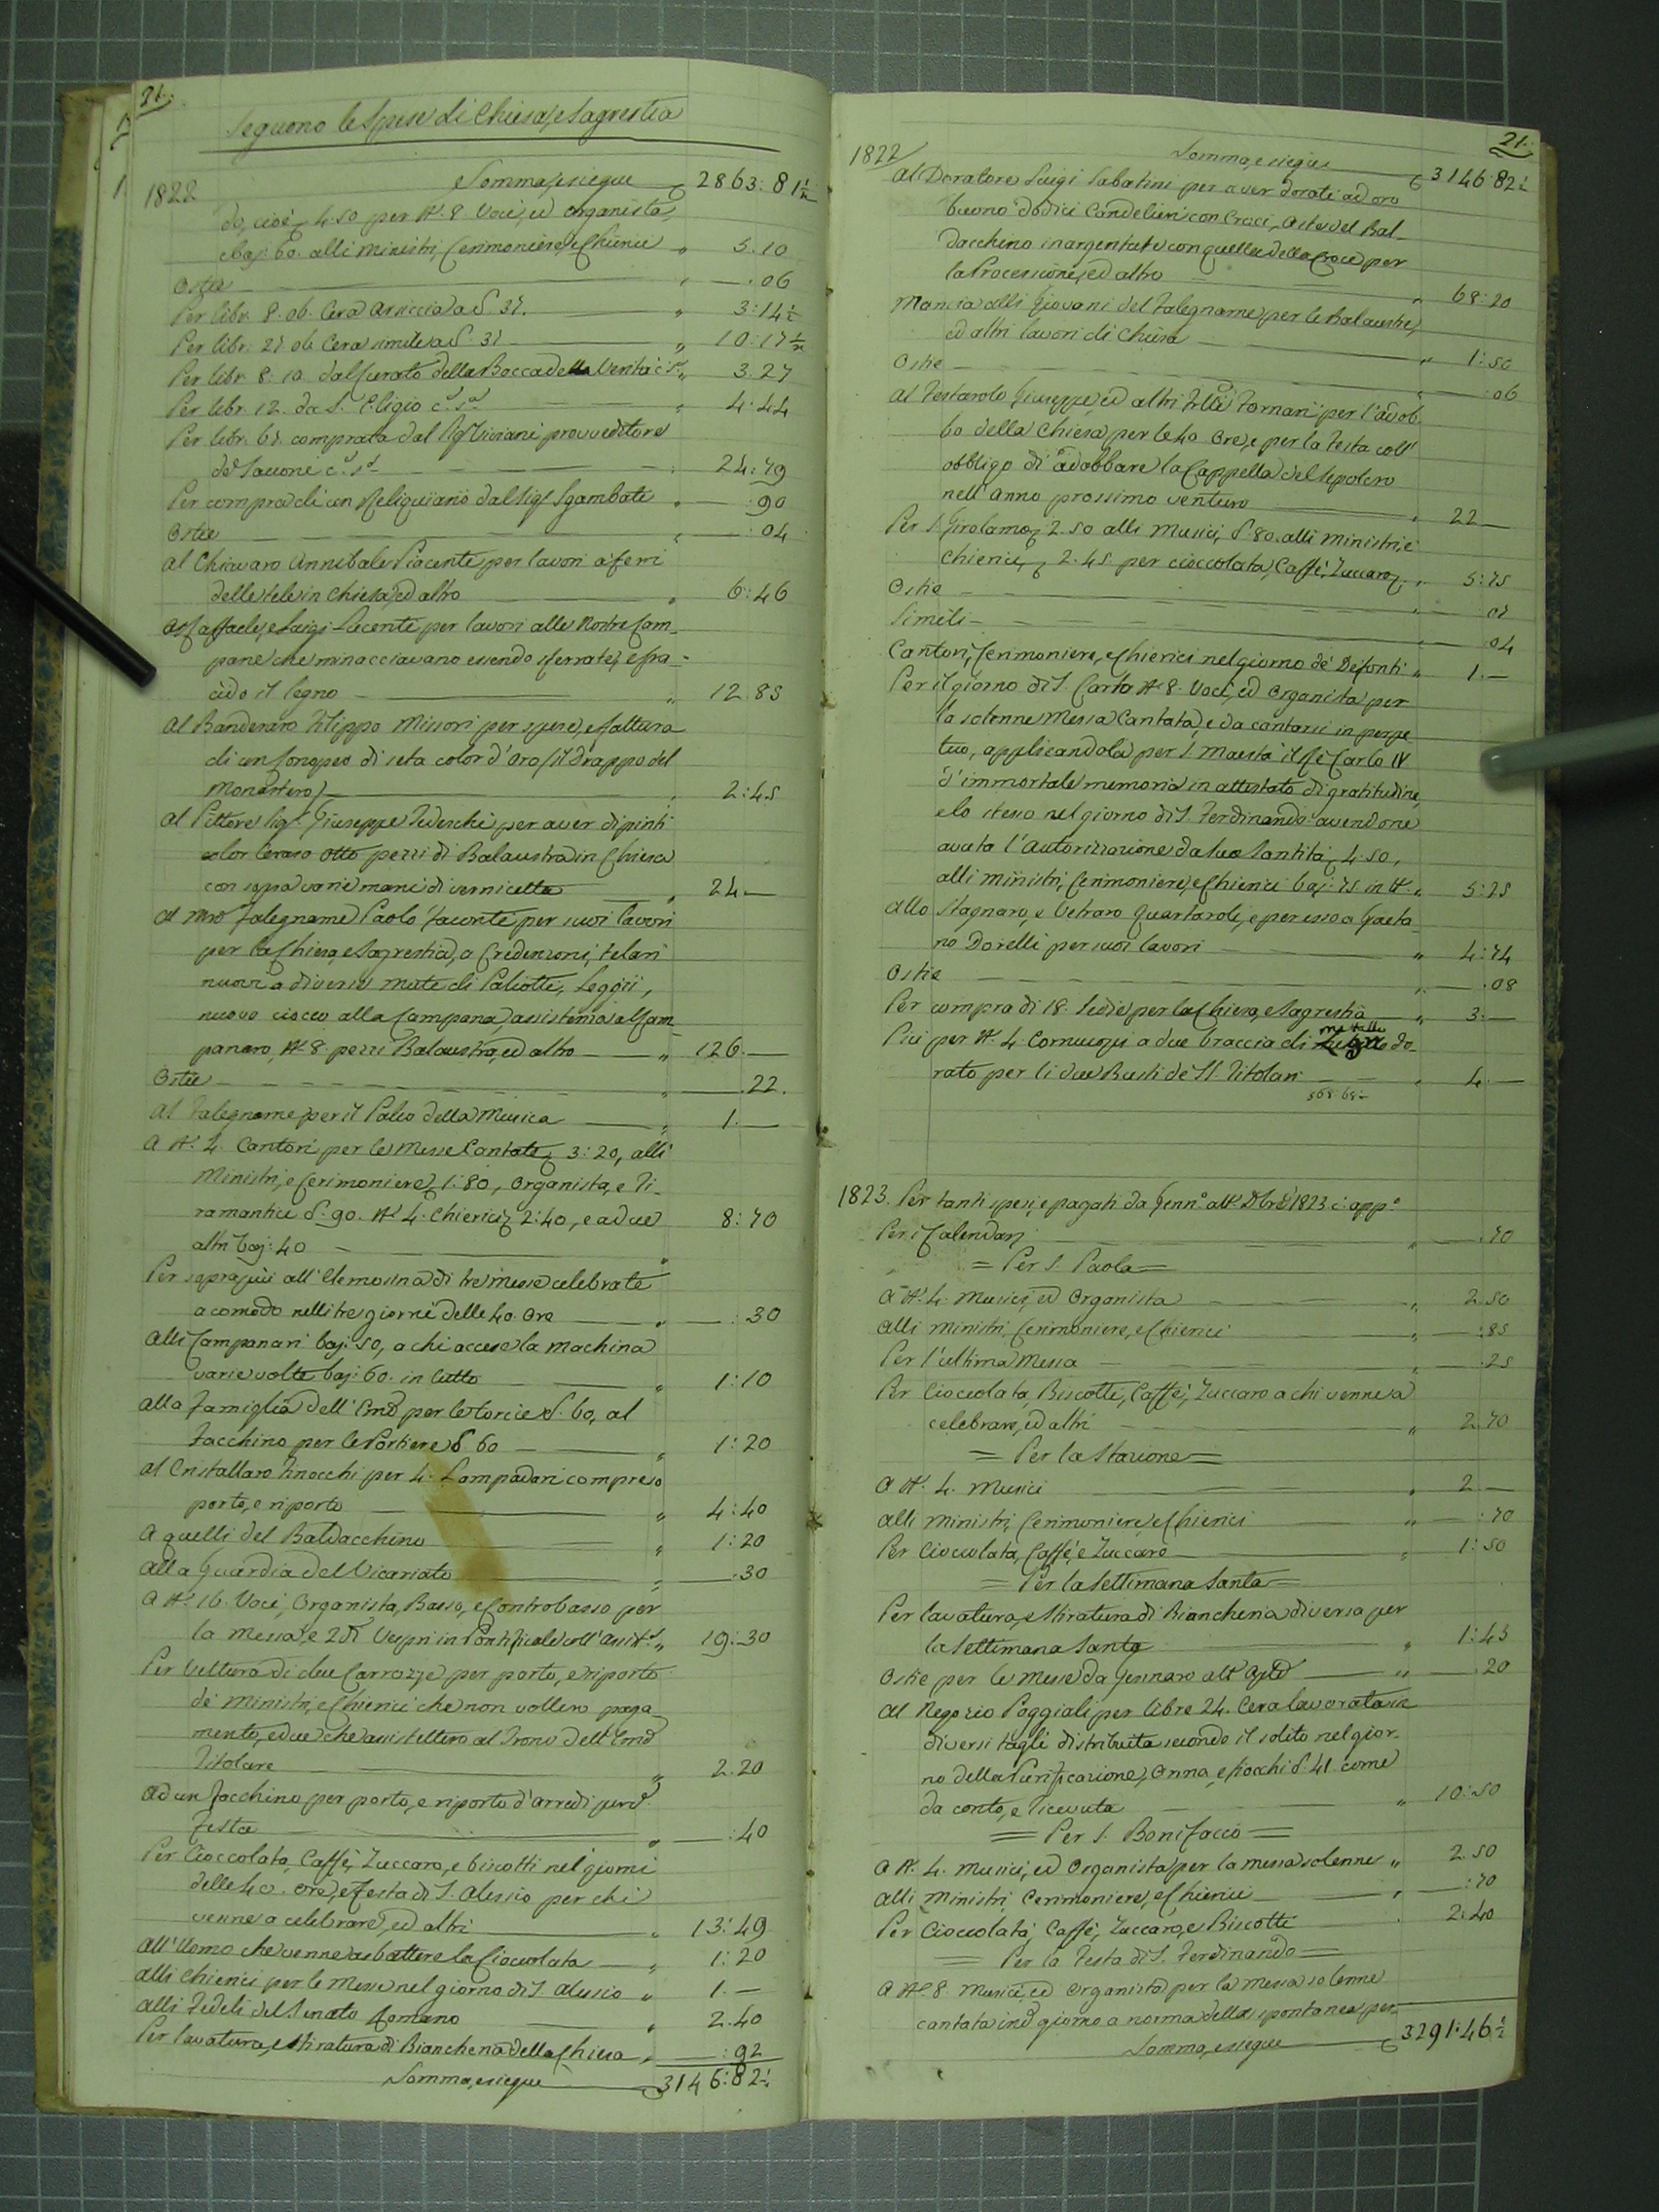 21.
Seguono le Spese di Chiesa, e Sagrestia
1822
Somma, e siegue 2863:81½
do, cioè 4.50 per N. 8 Voci, ed Organista,
e baj: 60. alli Ministri, Cerimoniere, e Chierici " 5.10
Ostie " —.06
Per libr. 8.06. Cera Ariccia a S. 37. " 3:14½
Per libr. 27.06 Cera simile a S. 37 " 10:17½
Per libr. 8.10. dal Curato della Bocca della Verità c.s. " 3.27
Per libr. 12. da S. Eligio c.s. " 4:44
Per libr. 67. comprata dal Sig. Viviani provveditore
de' Saccone c.s. 24:79
Per compra di un Reliquiario dal Sig. Sgambati " —:90
Ostie " —:04
Al Chiavaro Annibale Piacenti per lavori a' ferri
delle tele in Chiesa, ed altro " 6:46
A Raffaele, e Luigi Lucenti per lavori alle Nostre Cam-
pane che minacciavano essendo sferrate, e fra-
cido il legno " 12.85
Al Banderaro Filippo Missori per spese, e fattura
di un Conopeo di seta color d'Oro (il Drappo del
Monastero) " 2:45
Al Pittore Sig. Giuseppe Tedeschi per aver dipinti
color Ceraso Otto pezzi di Balaustra in Chiesa
con sopra varie mani di vernicetta " 24.—
Al Mro Falegname Paolo Jaconte per suoi lavori
per la Chiesa, e Sagrestia, a Credenzoni, telari
nuovi a diverse mute di Paliotti, Leggii,
nuovo ciocco alla Campana, assistenza al Cam-
panaro, N. 8. pezzi Balaustra, ed altro " 126.—
Ostie " —.22.
Al Falegname per il Palco della Musica " 1.—
A N. 4. Cantori per le Messe Cantate 3:20, alli
Ministri, e Cerimoniere 1:80, Organista, e Ti-
ramantici S. 90. N. 4. Chierici 2:40, e a due
altri baj: 40 " 8:70
Per soprapiù all'Elemosina di tre messe celebrate
a comodo nelli tre giorni delle 40. Ore " —:30
Alli Campanari baj: 50, a chi accese la machina
varie volte baj: 60. in tutto " 1:10
Alla Famiglia dell'Emo per le torcie S. 60, al
Facchino per le Portiere S. 60 " 1:20
Al Cristallaro Finocchi per 4. Lampadari compreso
porto, e riporto " 4:40
A quelli del Baldacchino " 1:20
Alla Guardia del Vicariato " —.30
A N. 16. Voci, Organista, Basso, e Controbasso per
la Messa, e 2di Vespri in Pontificale coll'Assist. " 19:30
Per Vettura di due Carrozze, per porto, e riporto
de' Ministri, e Chierici che non vollero paga-
mento, e due che assistettero al Trono dell'Emo
Titolare " 2.20
Ad un Facchino per porto, e riporto d'Arredi per d.
Festa " —:40
Per Cioccolata, Caffè, Zuccaro, e biscotti nel' giorni
delle 40. Ore, e Festa di S. Alessio per chi
venne a celebrare, ed altri " 13:49
All'Uomo che venne a sbattere la Cioccolata " 1:20
Alli Chierici per le Messe nel giorno di S. Alessio " 1.—
Alli Fedeli del Senato Romano " 2.40
Per lavatura, e stiratura di Biancheria della Chiesa " —:92
Somma, e siegue 3146:82½
21.
1822
Somma, e siegue 3146:82½
Al Doratore Luigi Sabatini per aver dorati ad oro
buono dodici Candelieri con Croci, Aste del Bal-
dacchino inargentate con quelle della Croce per
la Processione, ed altro " 68:20
Mancia alli Giovani del Falegname per le Balaustre,
ed altri lavori di Chiesa " 1:50
Ostie " —:06
Al Festarolo Giuseppe, ed altri Flli Fornari per l'adob-
bo della Chiesa per le 40 Ore, e per la Festa coll'
obbligo di adobbare la Cappella del Sepolcro
nell'Anno prossimo venturo " 22—
Per S. Girolamo 2.50 alli Musici, S. 80. alli Ministri, e
Chierici, 2.45. per cioccolata, Caffè, Zuccaro " 5:75
Ostie " —:07
Simili " —:04
Cantori, Cerimoniere, e Chierici nel giorno de' Defonti " 1.—
Per il giorno di S. Carlo N. 8. Voci, ed Organista per
la solenne Messa Cantata, e da cantarsi in perpe-
tuo, applicandola per S. Maestà il Rè Carlo IV
d'immortale memoria in attestato di gratitudine,
e lo stesso nel giorno di S. Ferdinando avendone
avuta l'Autorizzazione da Sua Santità, 4:50,
alli Ministri, Cerimoniere, e Chierici baj: 75 in tt. " 5:25
Allo Stagnaro, e Vetraro Quartaroli, e per esso a Gaeta-
no Dorelli per suoi lavori " 4:74
Ostie " —.08
Per compra di 18. Sedie per la Chiesa, e Sagrestia " 3:—
Più per N. 4. Cornucopj a due braccia di metallo do-
rato per li due Busti de' SS. Titolari " 4.—
1823. Per tanti spesi, e pagati da Genn.o a tt. Xbre 1823. c. app.o
Per i Calendarj " —.70
= Per S. Paola =
A N. 4. Musici, ed Organista " 2.50
Alli Ministri, Cerimoniere, e Chierici " —:85
Per l'ultima Messa " —.25
Per Cioccolata, Biscotti, Caffè, Zuccaro a chi venne a
celebrare, ed altri " 2.70
= Per la Stazione =
A N. 4. Musici " 2.—
Alli Ministri, Cerimoniere, e Chierici " —:70
Per Cioccolata, Caffè, e Zuccaro " 1:50
= Per la Settimana Santa =
Per lavatura, e stiratura di Biancheria diversa per
la Settimana Santa " 1:45
Ostie per le Messe da Gennaro a tt. " —.20
Al Negozio Poggiali per libre 24. Cera lavorata in
diversi tagli distribuita secondo il solito nel gior-
no della Purificazione, Anna, e fiocchi S. 41. come
da conto, e ricevuta " 10:50
= Per S. Bonifacio =
A N. 4. Musici, ed Organista per la messa solenne " 2.50
Alli Ministri, Cerimoniere, e Chierici " —:70
Per Cioccolata, Caffè, Zuccaro, e Biscotti 2:40
= Per la Festa di S. Ferdinando =
A N. 8. Musici, ed Organista per la messa solenne
cantata in d. giorno a norma della spontanea per-
Somma, e siegue 3291:46½